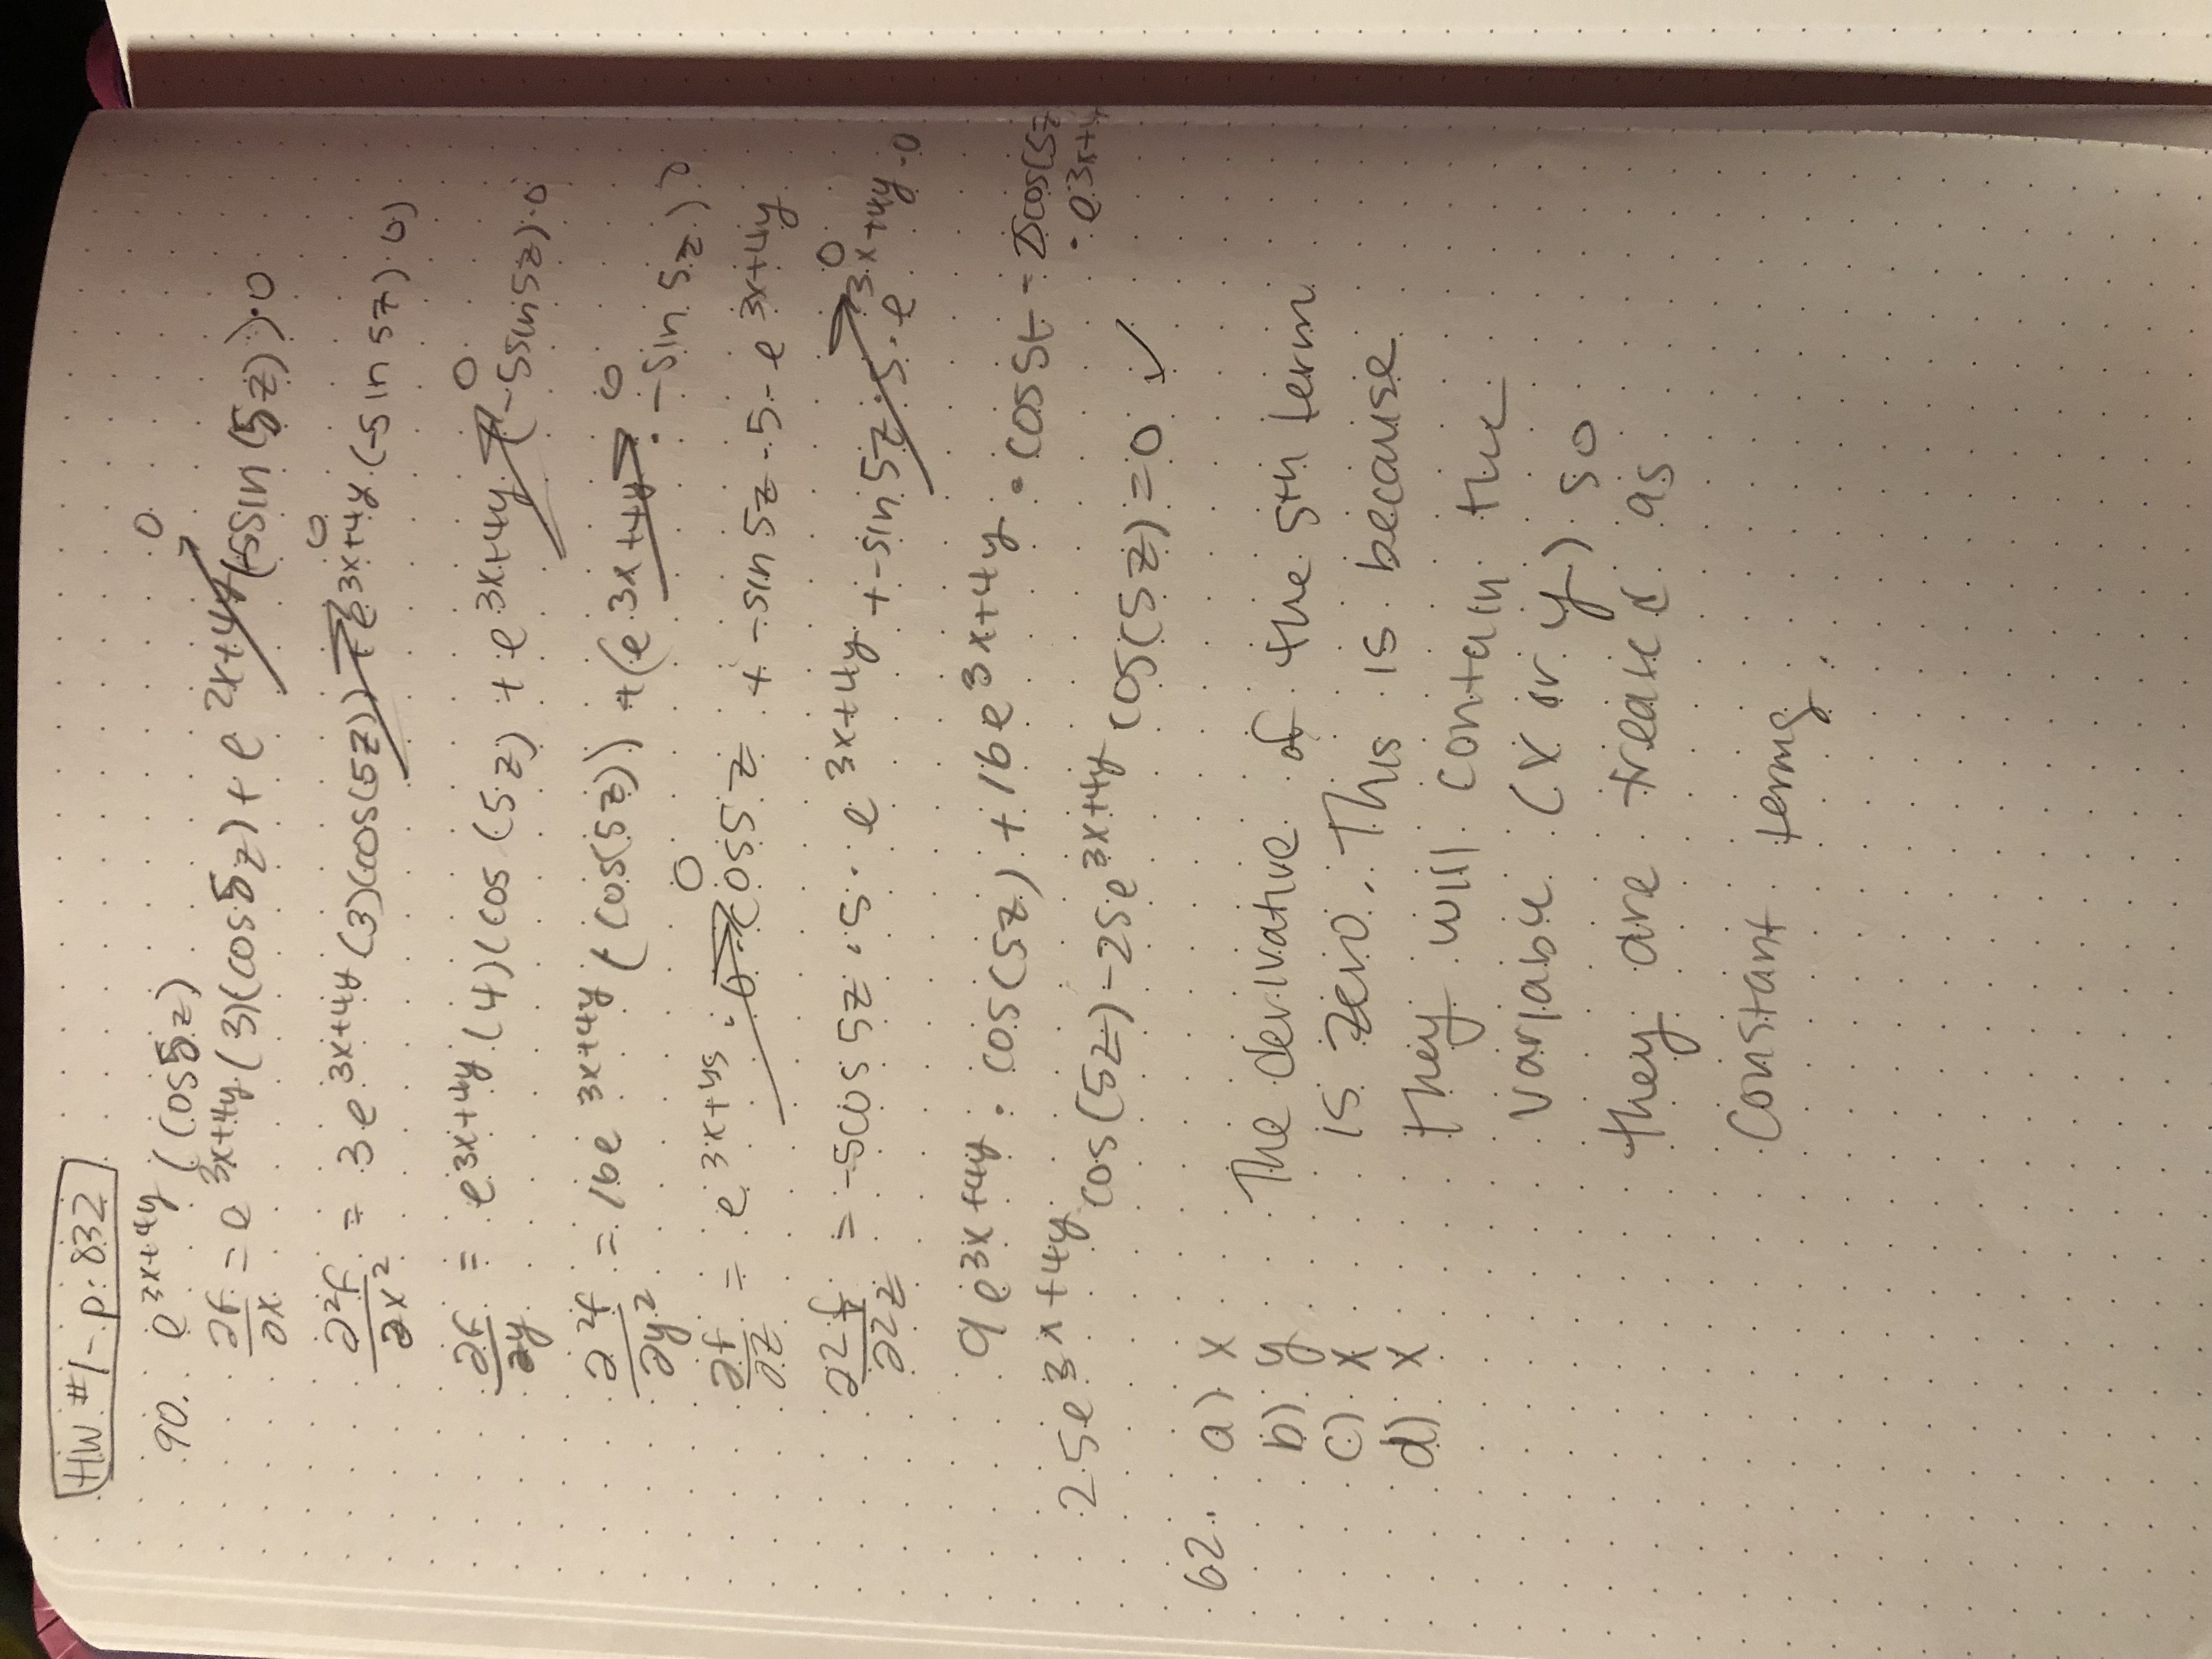 HW #1 - p. 832
90. e^{3x+4y} (cos5z)
∂f/∂x = e^{3x+4y} (3)(cos5z) + e^{2x+4y} (-5sin(5z))·0 0
∂²f/∂x² = 3e^{3x+4y} (3)(cos(5z)) + e^{3x+4y} · (-sin 5z) · 0) 0
∂f/∂y = e^{3x+4y} (4)(cos (5z) + e^{3x+4y} · (-5sin5z)·0 0
∂²f/∂y² = 16e^{3x+4y} (cos(5z)) + (e^{3x+4y} · -sin 5z) 0
∂f/∂z = e^{3x+4y} · 0 · cos5z 0 + -sin 5z · 5 · e^{3x+4y}
∂²f/∂²z = -5cos 5z · 5 · e^{3x+4y} + -sin 5z · 5 · e^{3x+4y} · 0 0
9e^{3x+4y} · cos(5z) + 16e^{3x+4y} · cos5z - 25cos(5z
· e^{3x+4y}
25e^{3x+4y} cos(5z) - 25e^{3x+4y} cos(5z) = 0 ✓
62. a) x
b) y The derivative of the 5th term
c) x is zero. This is because
d) x they will contain the
variable (x or y) so
they are treated as
constant terms.